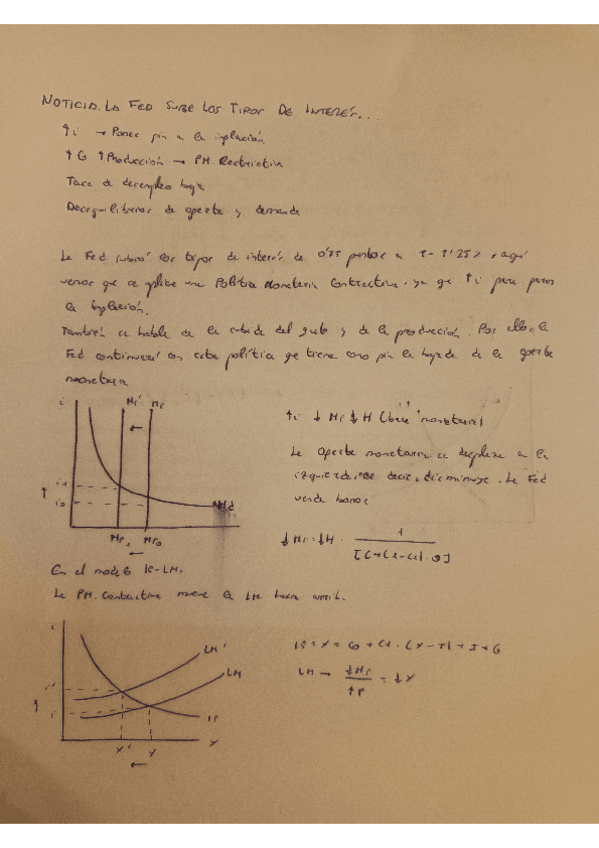 NOTICIA. LA FED SUBE LOS TIPOS DE INTERÉS...
↑i → Poner fin a la inflación
↑G ↑Producción → PM. Restrictiva
Tasa de desempleo baja
Desequilibrios de oferta y demanda
La Fed subió los tipos de interés de 0'75 puntos a 1'25%, aquí
vemos que se aplica una Política Monetaria Contractiva, ya que ↑i para parar
la inflación.
También se habla de la subida del gasto y de la producción. Por ello, la
Fed continuará con esta política que tiene como fin la bajada de la oferta
monetaria
i Ms' Ms
←
↑ i1
i0
Md
Ms1 Ms0
←
↑i ↓Ms ↓H (base monetaria)
La oferta monetaria se desplaza a la
izquierda, es decir, disminuye. La Fed
vende bonos
↓Ms = ↓H · 1 / [c+(1-c)·θ]
En el modelo IS-LM.
La PM. Contractiva mueve la LM hacia arrib.
i
LM'
LM
↑ i'
i
IS
Y' Y Y
←
IS = Y = C0 + C1 · (Y-T) + I + G
LM → ↓Ms / ↑P = ↓Y